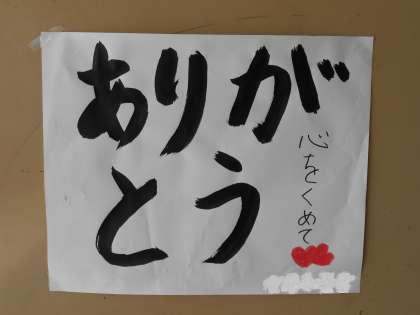 ありが
とう
心をくめて